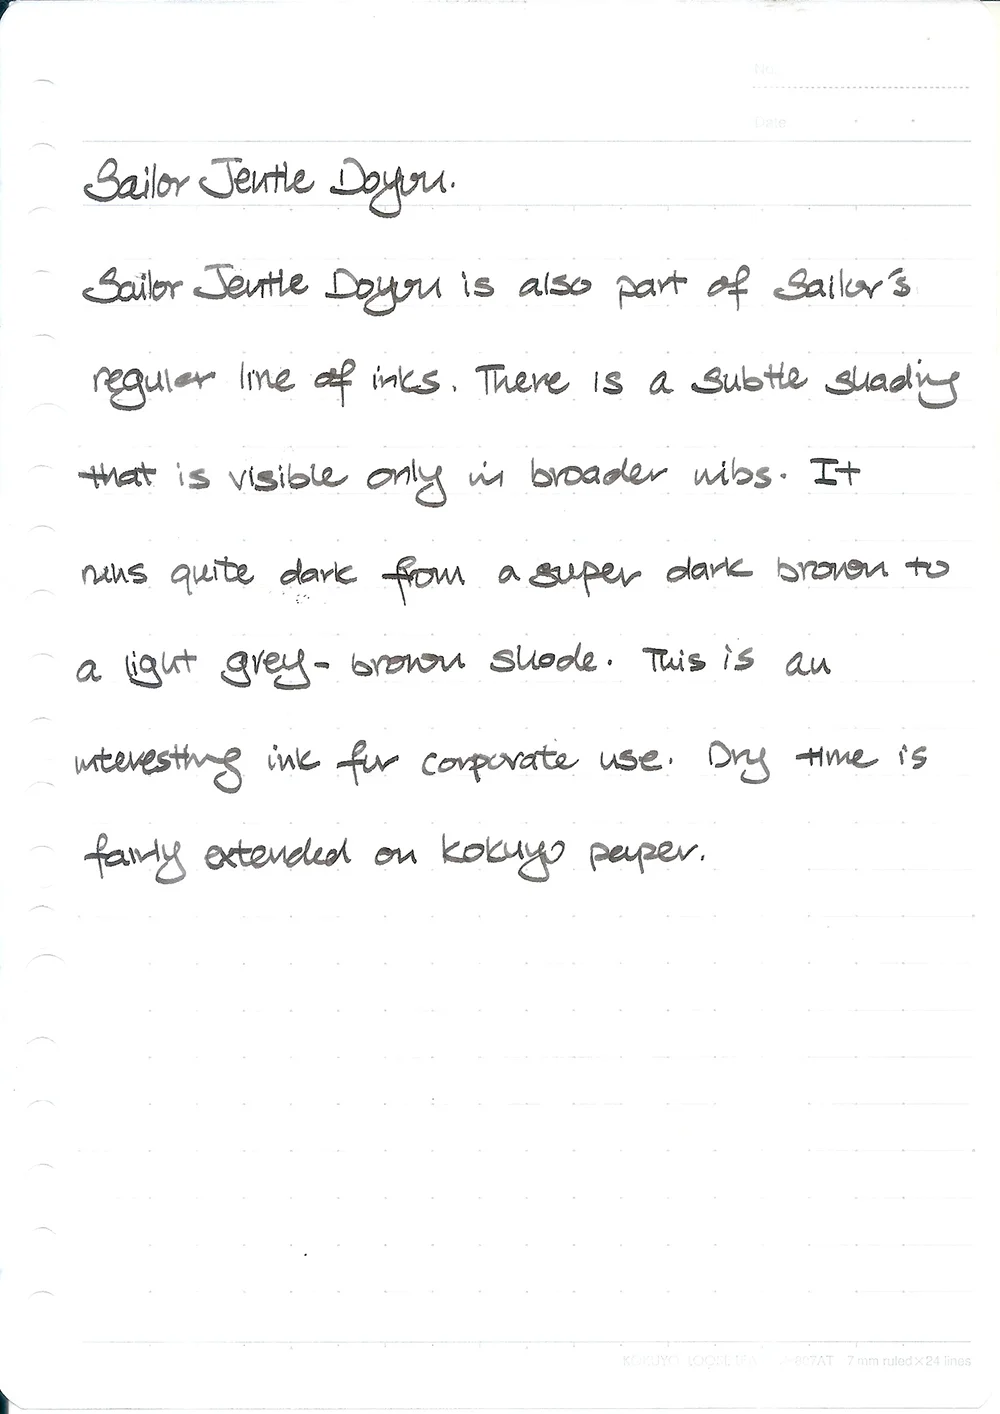 No.
Date
Sailor Jentle Doyou.
Sailor Jentle Doyou is also part of Sailor's
regular line of inks. There is a subtle shading
that is visible only in broader nibs. It
runs quite dark from a super dark brown to
a light grey-brown shade. This is an
interesting ink for corporate use. Dry time is
fairly extended on Kokuyo paper.
KOKUYO LOOSE-LEAF 7 mm ruled × 24 lines